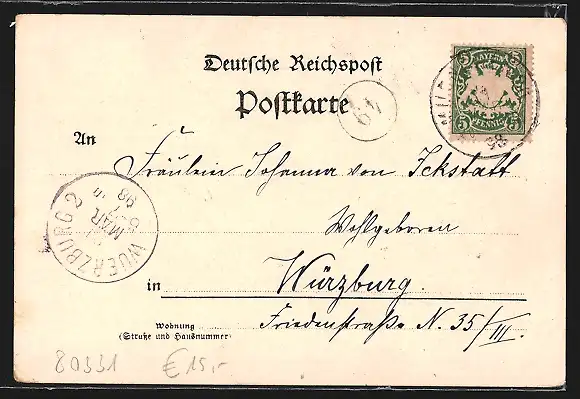 Deutsche Reichspost
Postkarte
49
BAYERN
5 5
5 PFENNIG 5
98
An
Fräulein Johanna von Ickstatt
Wohlgeboren
WUERZBURG 2
MAR
98
in Würzburg.
Wohnung
(Straße und Hausnummer)
Friedenstraße N. 35/III.
80331
€ 15,-